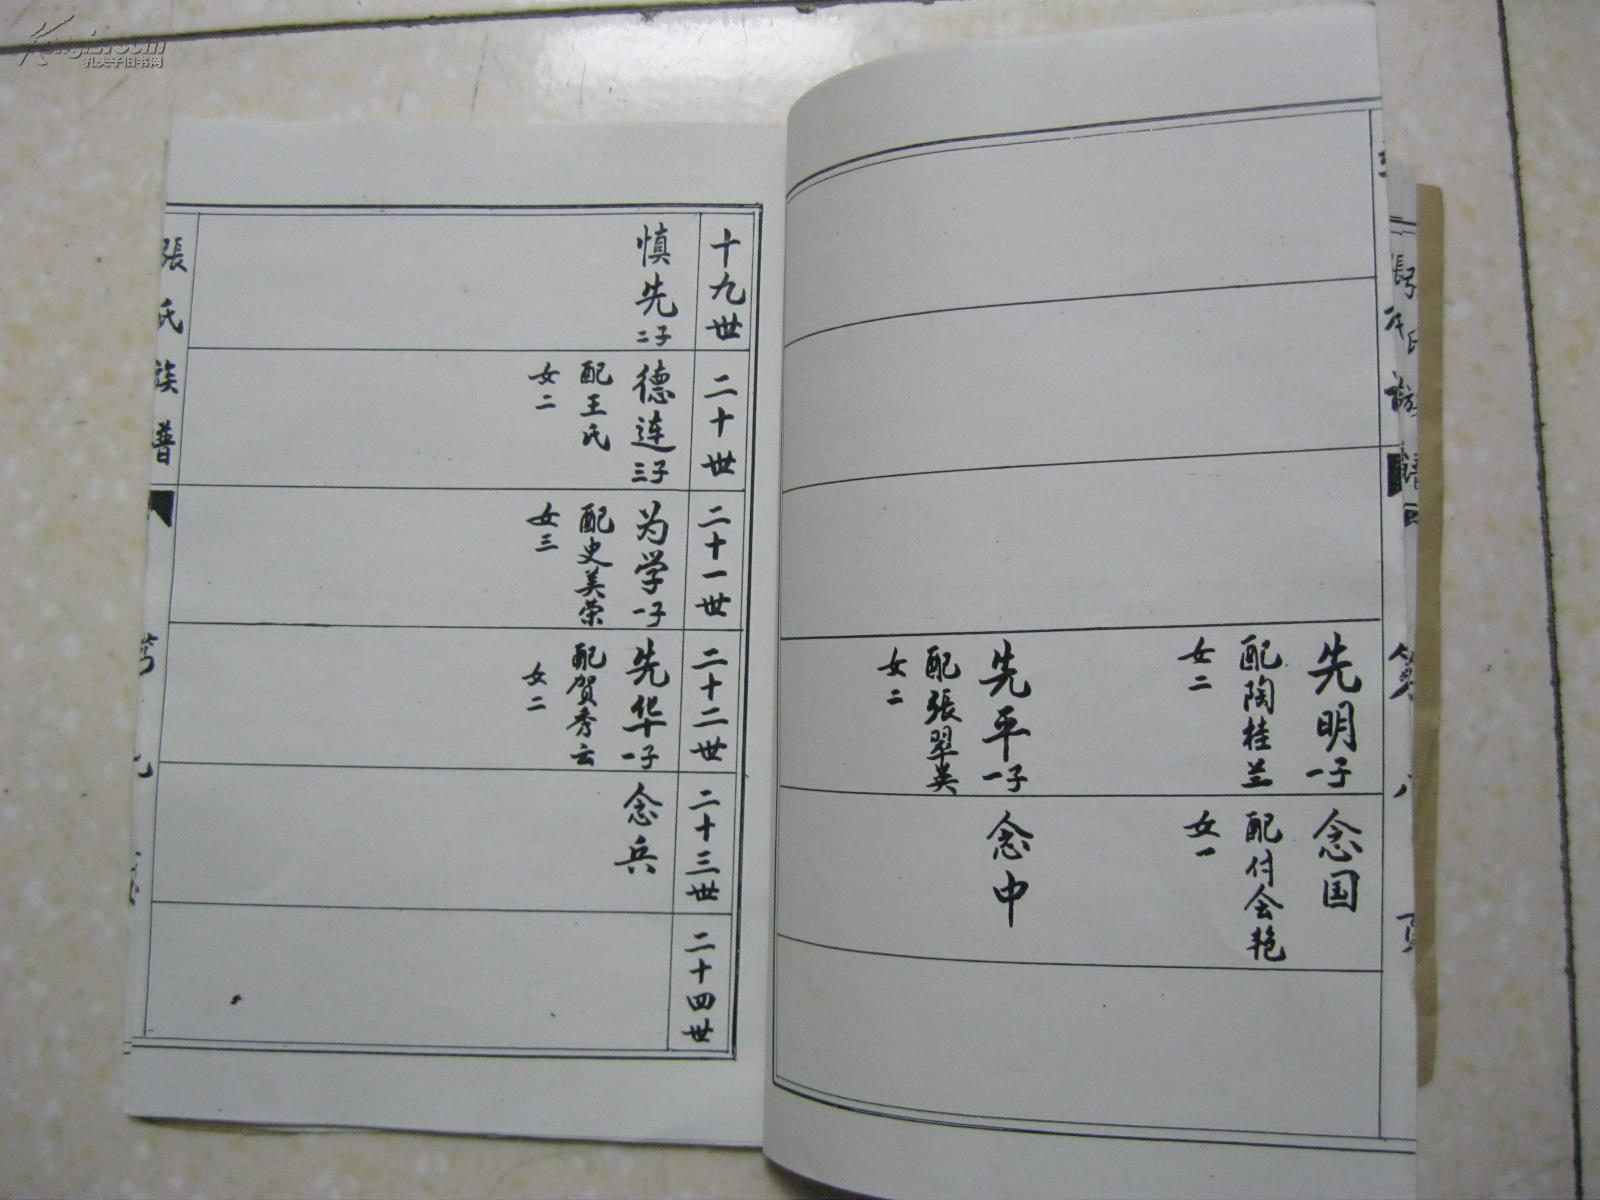 孔夫子旧书网
先明一子
配陶桂兰
女二
念国
配付会艳
女一
先平一子
配張翠英
女二
念中
第八頁
十九世
二十世
二十一世
二十二世
二十三世
二十四世
慎先二子
德连三子
配王氏
女二
为学一子
配史美荣
女三
先华一子
配贺秀云
女二
念兵
張氏族普
九